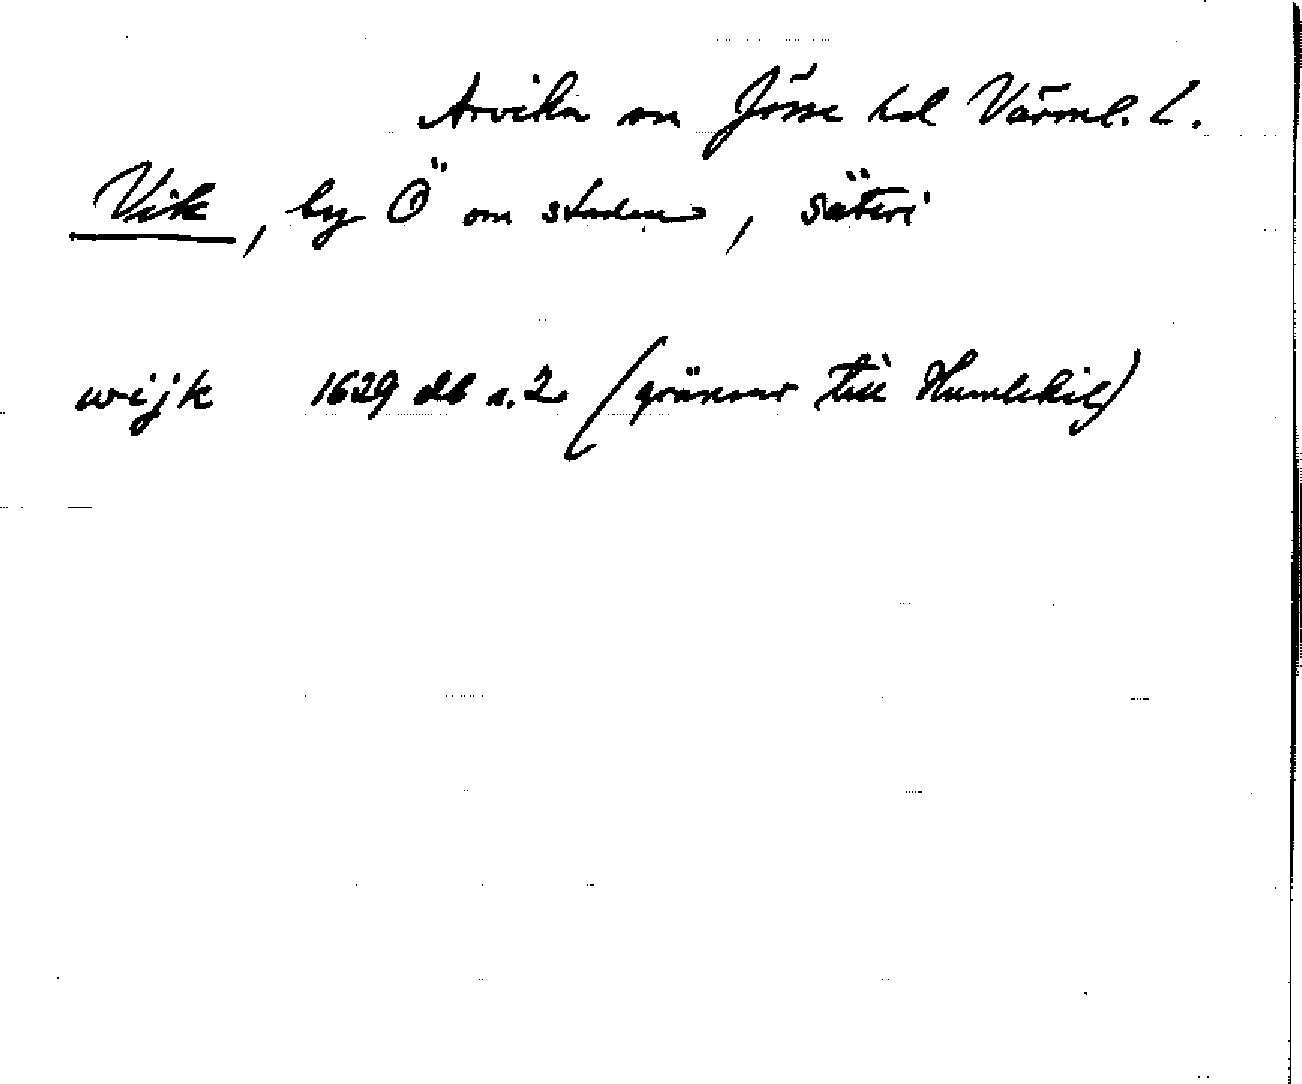 Arvika sn Jösse hd Värml. L.
Vik, by Ö om staden, säteri
wijk 1629 db s. 2 (gränsar till Humlekil)